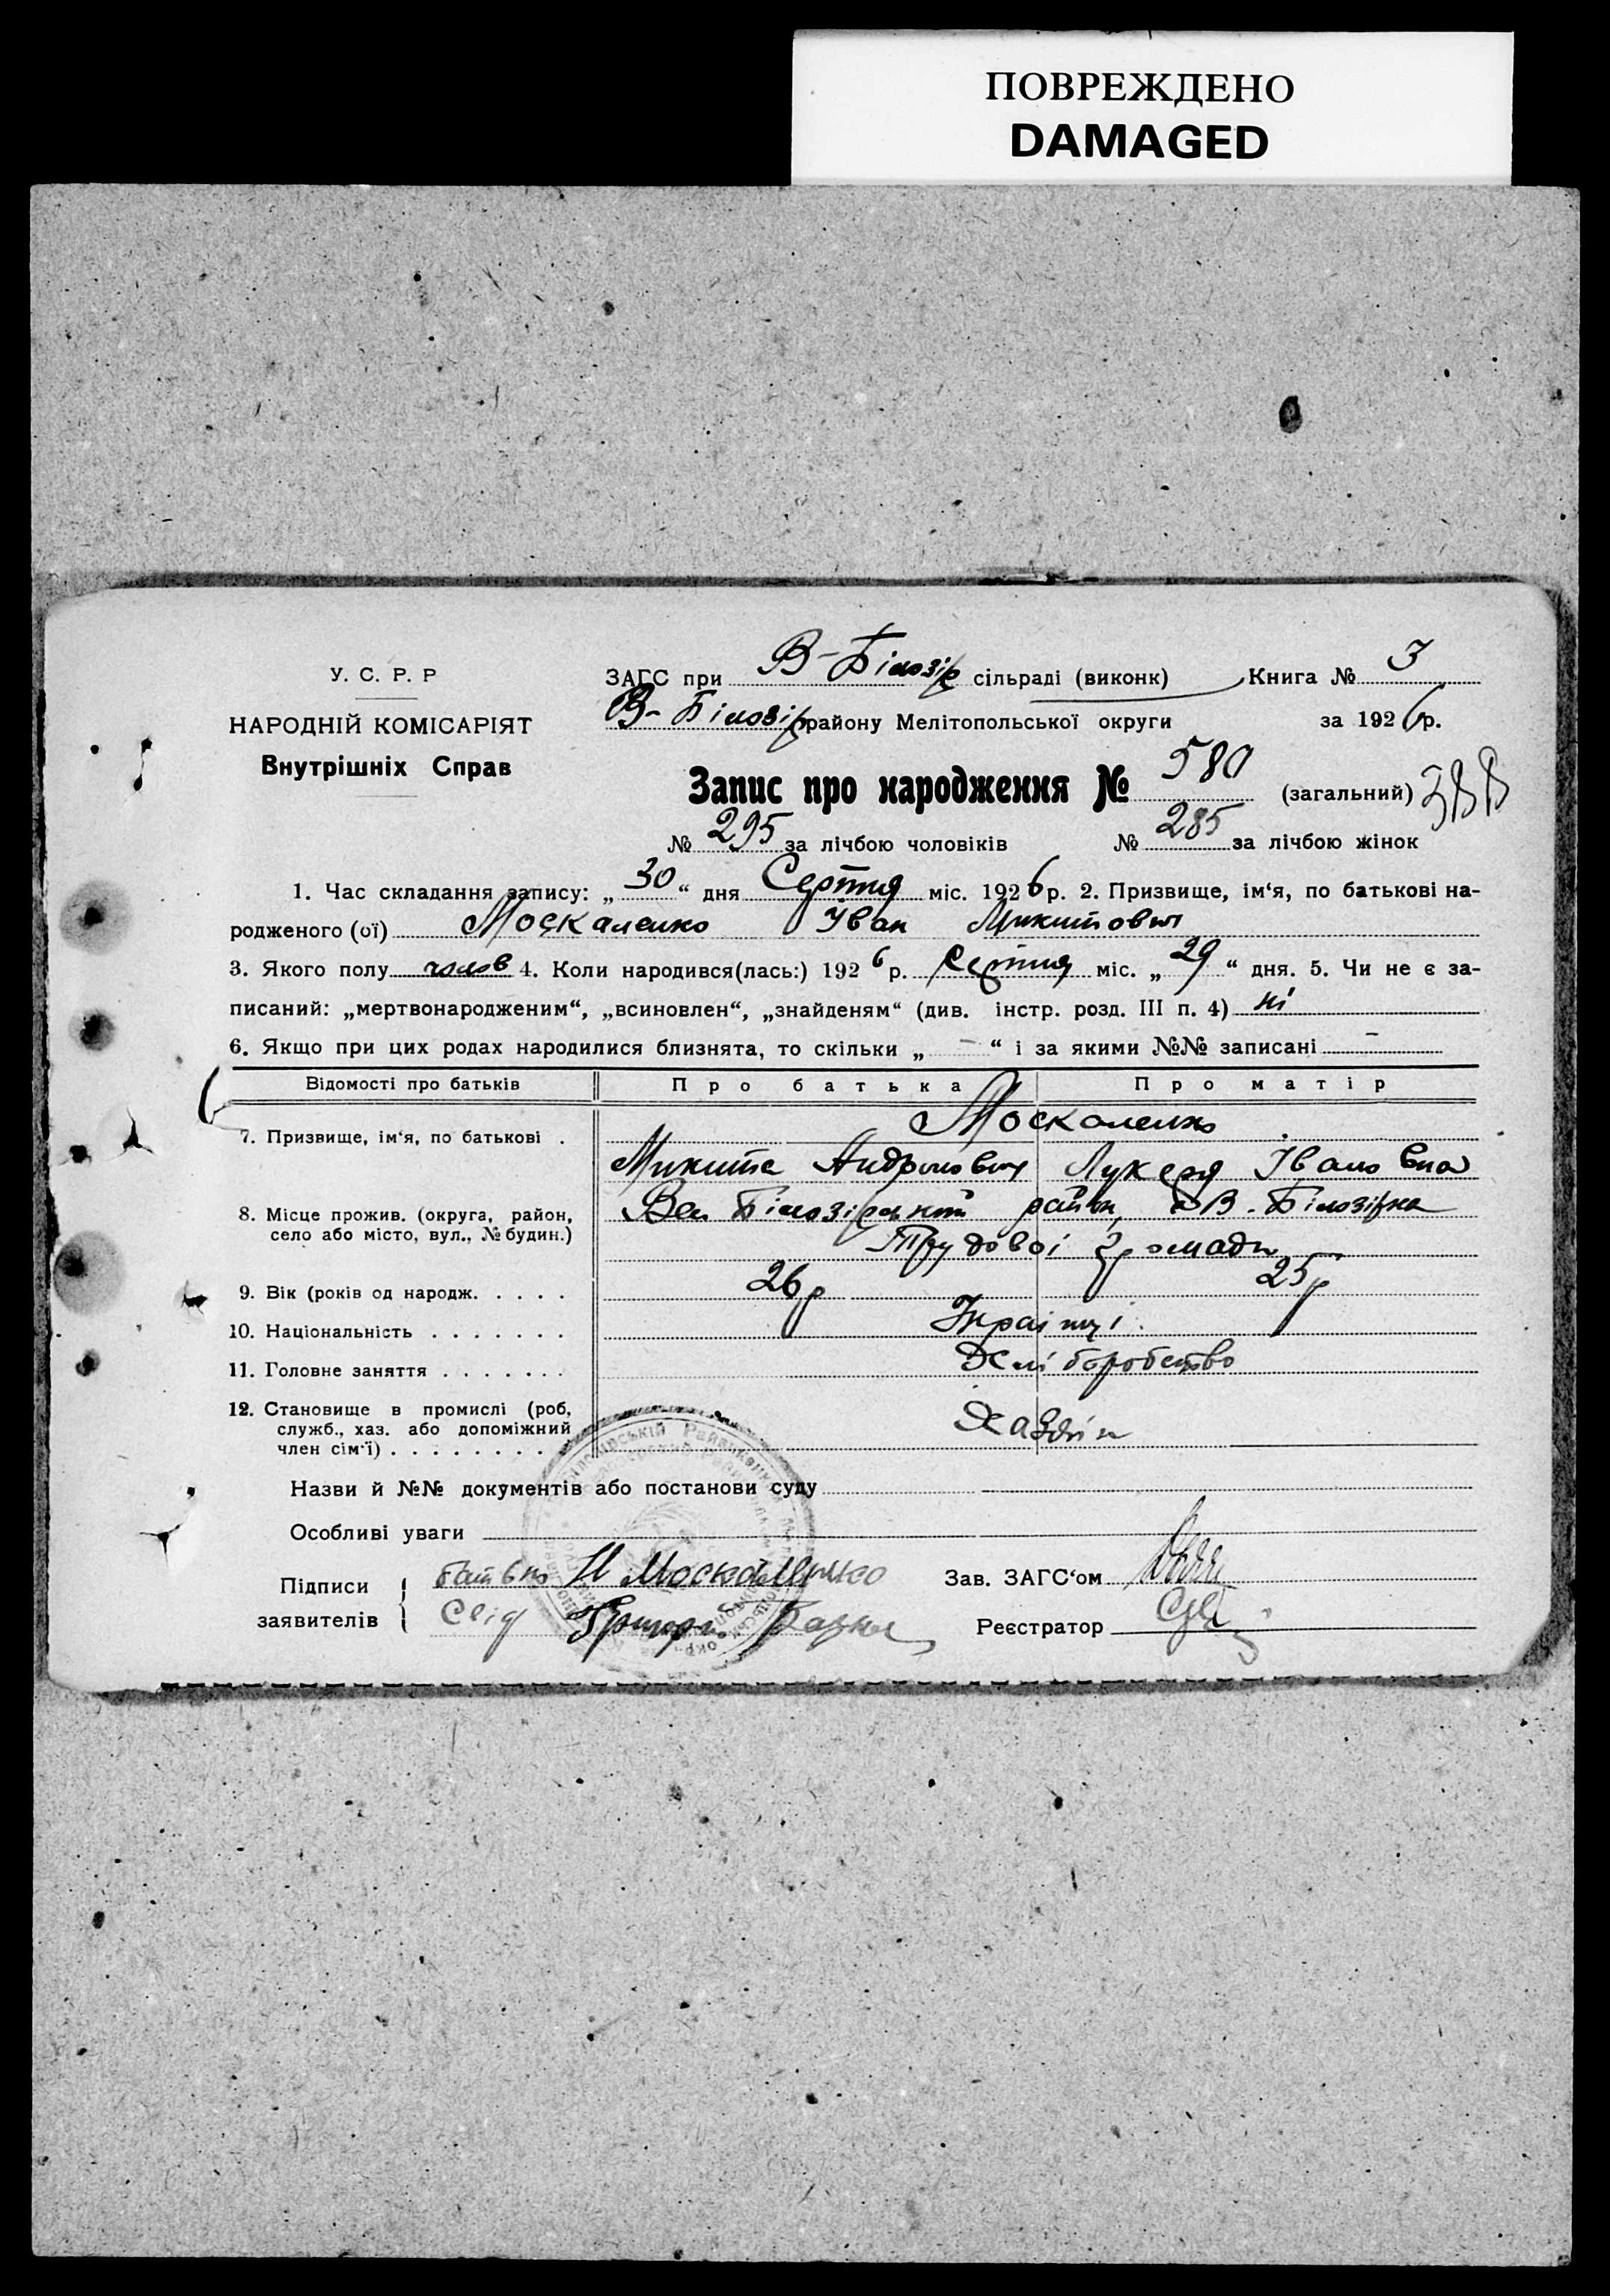 ПОВРЕЖДЕНО
DAMAGED
У. С. Р. Р
НАРОДНІЙ КОМІСАРІЯТ
Внутрішніх Справ
ЗАГС при В-Білозір сільраді (виконк) Книга № 3
В-Білозір району Мелітопольської округи за 1926 р.
Запис про народження № 580 (загальний)
№ 295 за лічбою чоловіків № 285 за лічбою жінок
1. Час складання запису: „30“ дня Серпня міс. 1926 р. 2. Призвище, ім‘я, по батькові на-
родженого (ої) Москаленко Іван Микитович
3. Якого полу чолов 4. Коли народився(лась:) 1926 р. Серпня міс. „29“ дня. 5. Чи не є за-
писаний: „мертвонародженим“, „всиновлен“, „знайденям“ (див. інстр. розд. III п. 4) ні
6. Якщо при цих родах народилися близнята, то скільки „ – “ і за якими №№ записані –
Відомості про батьків Про батька Про матір
7. Призвище, ім‘я, по батькові . Москаленко
Микита Андронович Лукеря Івановна
8. Місце прожив. (округа, район, село або місто, вул., № будин.) Вел Білозірський район, В. Білозірка
Трудової громади
9. Вік (років од народж. . . . . 26 р 25 р
10. Національність . . . . . . . Українці
11. Головне заняття . . . . . . . Хліборобство
12. Становище в промислі (роб,
служб., хаз. або допоміжний
член сім‘ї) . . . . . . . .
Назви й №№ документів або постанови суду
Особливі уваги
Підписи заявителів
батько Н Москаленко
Свід Григорі
Зав. ЗАГС‘ом
Реєстратор